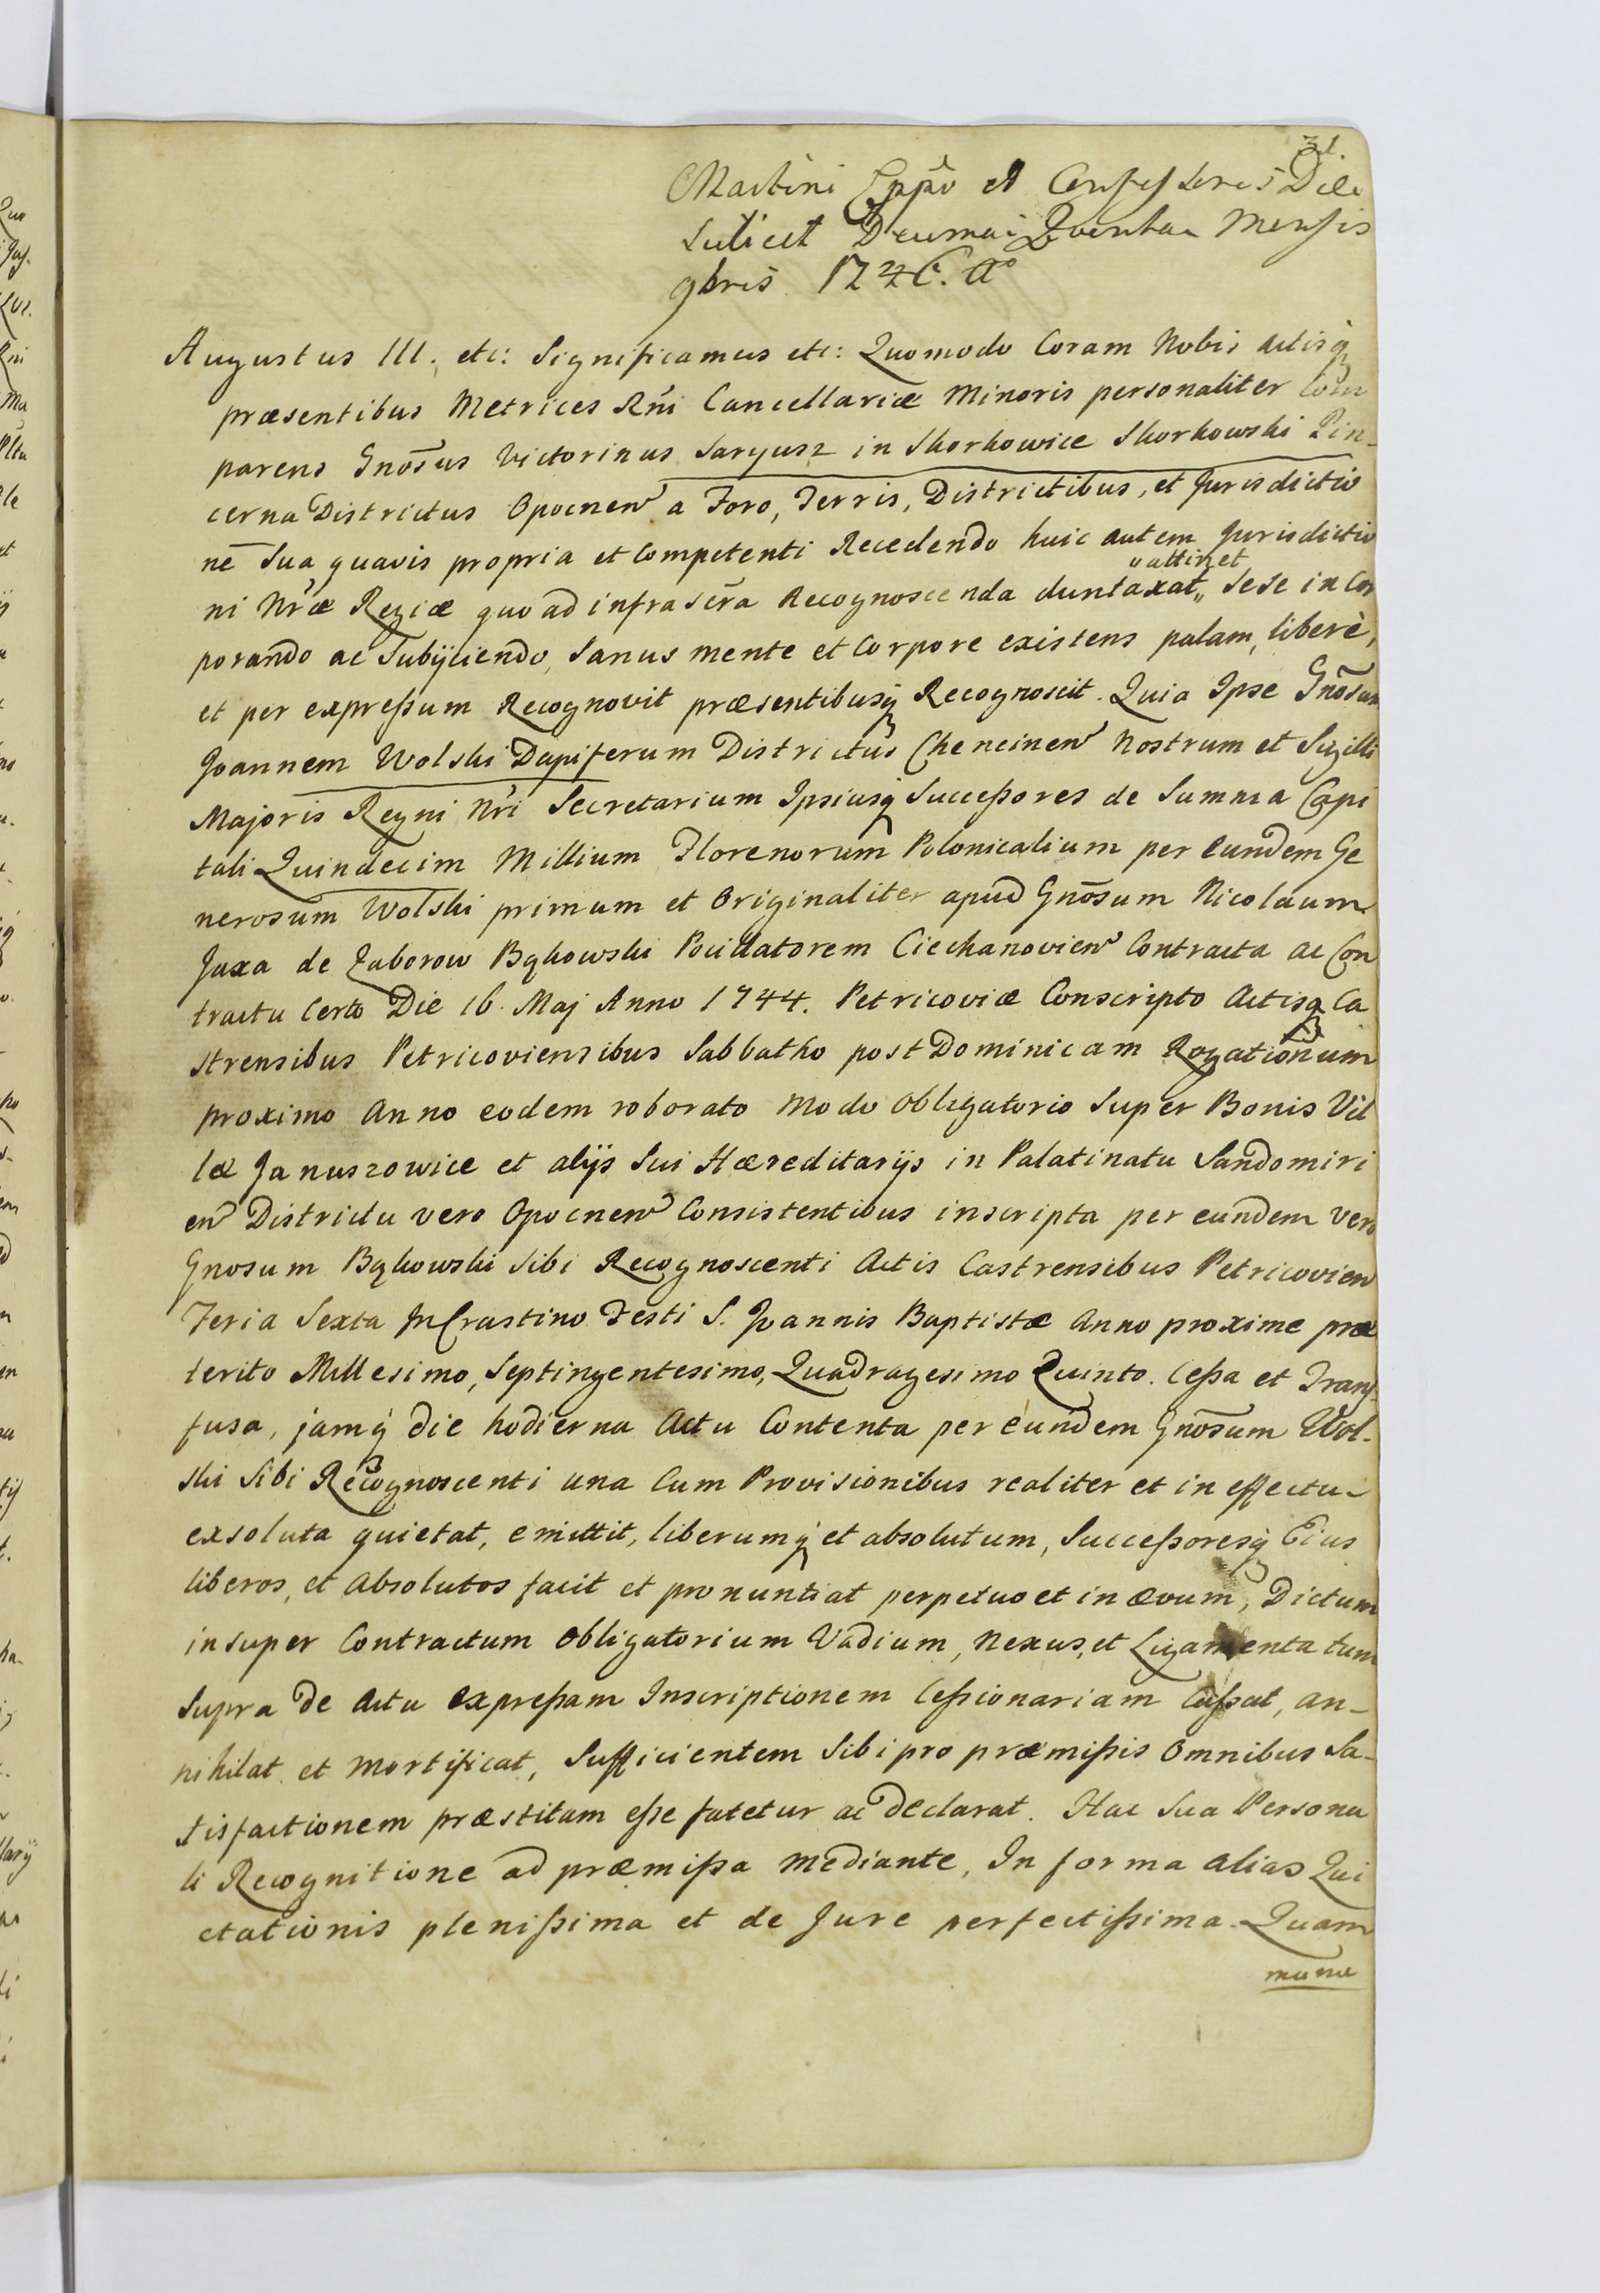 31.
Martini Eppi et Confessoris Die
scilicet Decima Quinta Mensis
9bris 1746. Ao
Augustus III. etc: Significamus etc: Quomodo Coram Nobis actisq
præsentibus Metrices Rni Cancellariæ Minoris personaliter Com
parens Gnosus Victorinus Saryusz in Skorkowice Skorkowski Pin-
cerna Districtus Opocnen a Foro, Terris, Districtibus, et Jurisdictio
nē Sua quavis propria et Competenti Recedendo huic autem Jurisdictio
"attinet
ni Nræ Regiæ quo ad infrascra Recognoscenda duntaxat" Sese in Cor
porando ac Subijciendo, Sanus mente et Corpore existens palam, liberè,
et per expreßum Recognovit præsentibusq Recognoscit. Quia Ipse Gnosum
Joannem Wolski Dapiferum Districtus Chencinen Nostrum et Sigilli
Majoris Regni Nri Secretarium Ipsiusq Succeßores de Summa Capi
tali Quindecim Millium Florenorum Polonicalium per Eundem Ge
nerosum Wolski primum et Originaliter apud Gnosum Nicolaum
Jaxa de Zaborow Bąkowski Pocillatorem Ciechanovien Contracta ac Con
tractu Certo Die 16. Maj Anno 1744. Petricoviæ Conscripto Actisq Ca
strensibus Petricoviensibus Sabbatho post Dominicam Rogationum
proximo Anno eodem roborato Modo Obligatorio Super Bonis Vil
læ Januszowice et alijs Sui Hæreditarijs in Palatinatu Sandomiri
en Districtu vero Opocnen Consistentibus inscripta per eundem vero
Gnosum Bąkowski Sibi Recognoscenti Actis Castrensibus Petricovien
Feria Sexta In Crastino Festi S. Joannis Baptistæ Anno proxime præ
terito Millesimo, Septingentesimo, Quadragesimo Quinto. Ceßa et Trans-
fusa, jamq die hodierna Actu Contenta per eundem Gnosum Wol-
ski Sibi Recognoscenti una Cum Provisionibus realiter et in effectu-
exsoluta quietat, emittit, liberumq et absolutum, Succeßoresq Eius
liberos, et Absolutos facit et pronuntiat perpetuo et in ævum, Dictum
insuper Contractum Obligatorium Vadium, Nexus, et Ligamenta tum
Supra de Actu expreßam Inscriptionem Ceßionariam Caßat, an-
nihilat et Mortificat, Sufficientem Sibi pro præmißis Omnibus Sa-
tisfactionem præstitam eße fatetur ac declarat. Hac Sua Persona
li Recognitione ad præmißa Mediante, In forma alias Qui
etationis plenißima et de Jure perfectißima. Quam
manu